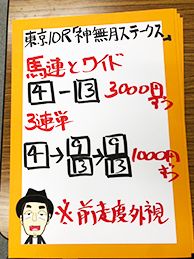 東京10R「神無月ステークス」
馬連とワイド
4－13 3000円ずつ
3連単
4→9 13→9 13 1000円ずつ
※前走度外視